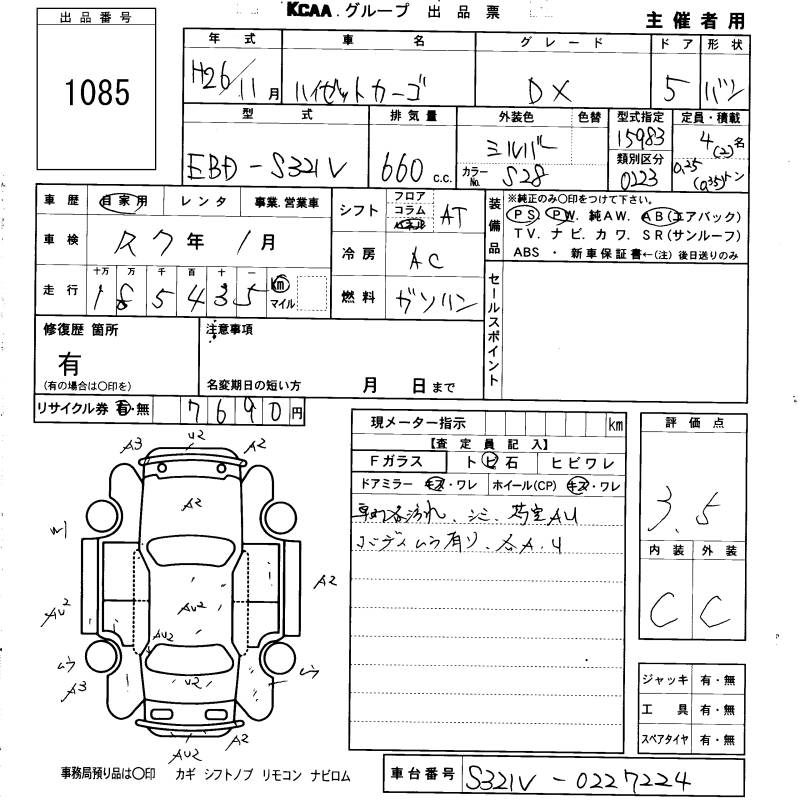 KCAA グループ 出品票
主催者用
出品番号
1085
年式 車名 グレード ドア 形状
H26/11月 ハイゼットカーゴ DX 5 バン
型式 排気量 外装色 色替 型式指定 定員・積載
EBD-S321V 660 c.c. シルバー 15983 4(2)名
カラーNo. S28 類別区分 0223 0.25(0.35)トン
車歴 自家用 レンタ 事業.営業車
車検 R7年 1月
走行 十万 万 千 百 十 一
1 8 5 4 3 5 km マイル
シフト フロア コラム パネル AT
冷房 AC
燃料 ガソリン
装備品 ※純正のみ〇印をつけて下さい。
PS PW. 純AW. AB(エアバック)
TV. ナビ. カワ. SR(サンルーフ)
ABS ・ 新車保証書←(注) 後日送りのみ
セールスポイント
修復歴 箇所
有
(有の場合は〇印を)
注意事項
名変期日の短い方 月 日まで
リサイクル券 有・無 7690円
現メーター指示 km
【査定員記入】
Fガラス トビ石 ヒビワレ
ドアミラー キズ・ワレ ホイール(CP) キズ・ワレ
車内各汚れ、シミ、荷室AU
ボディムラ有り、各A.U
評価点
3.5
内装 外装
C C
ジャッキ 有・無
工具 有・無
スペアタイヤ 有・無
A3 U2 A2
A2
A2
AU2
AU2
AU2
ムラ
ムラ
A3
U2
A2
AU2
事務局預り品は〇印 カギ シフトノブ リモコン ナビロム
車台番号 S321V-0227224